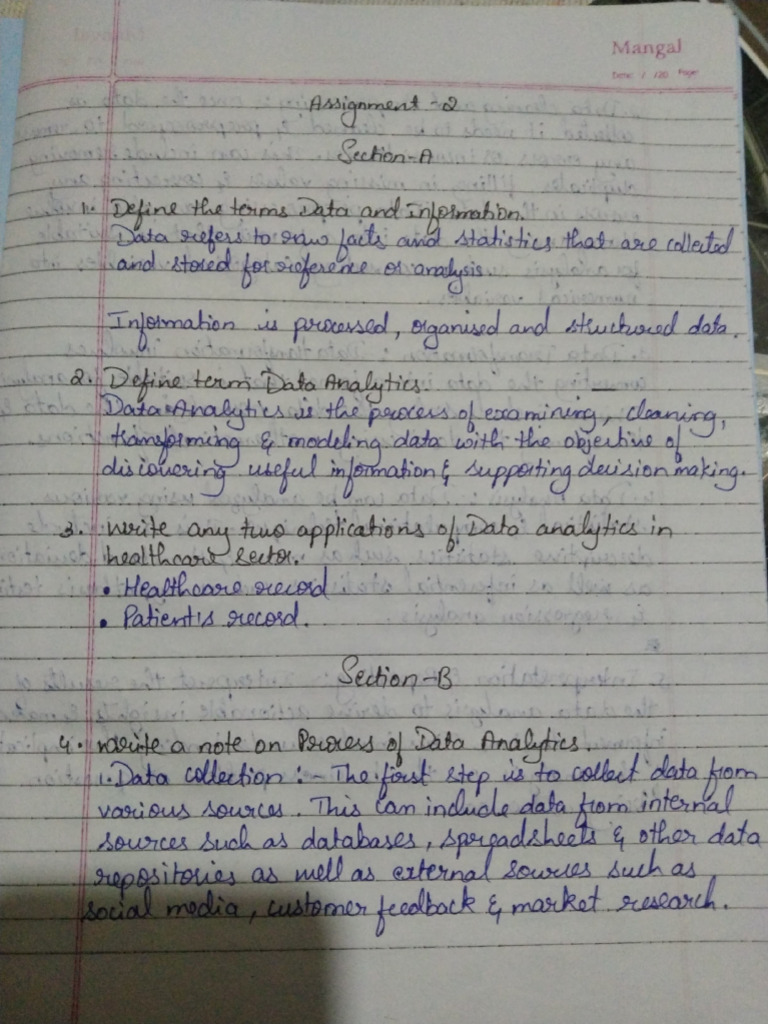 Mangal
Date: / /20 Page
Assignment - 2
Section-A
1. Define the terms Data and Information.
Data refers to raw facts and statistics that are collected
and stored for reference or analysis
Information is processed, organised and structured data.
2. Define term Data Analytics.
Data Analytics is the process of examining, cleaning,
transforming & modeling data with the objective of
discovering useful information & supporting decision making.
3. write any two applications of Data analytics in
healthcare sector.
• Healthcare record
• Patient's record.
Section-B
4. write a note on Process of Data Analytics.
1. Data collection :- The first step is to collect data from
various sources. This can include data from internal
sources such as databases, spreadsheets & other data
repositories as well as external sources such as
social media, customer feedback & market research.